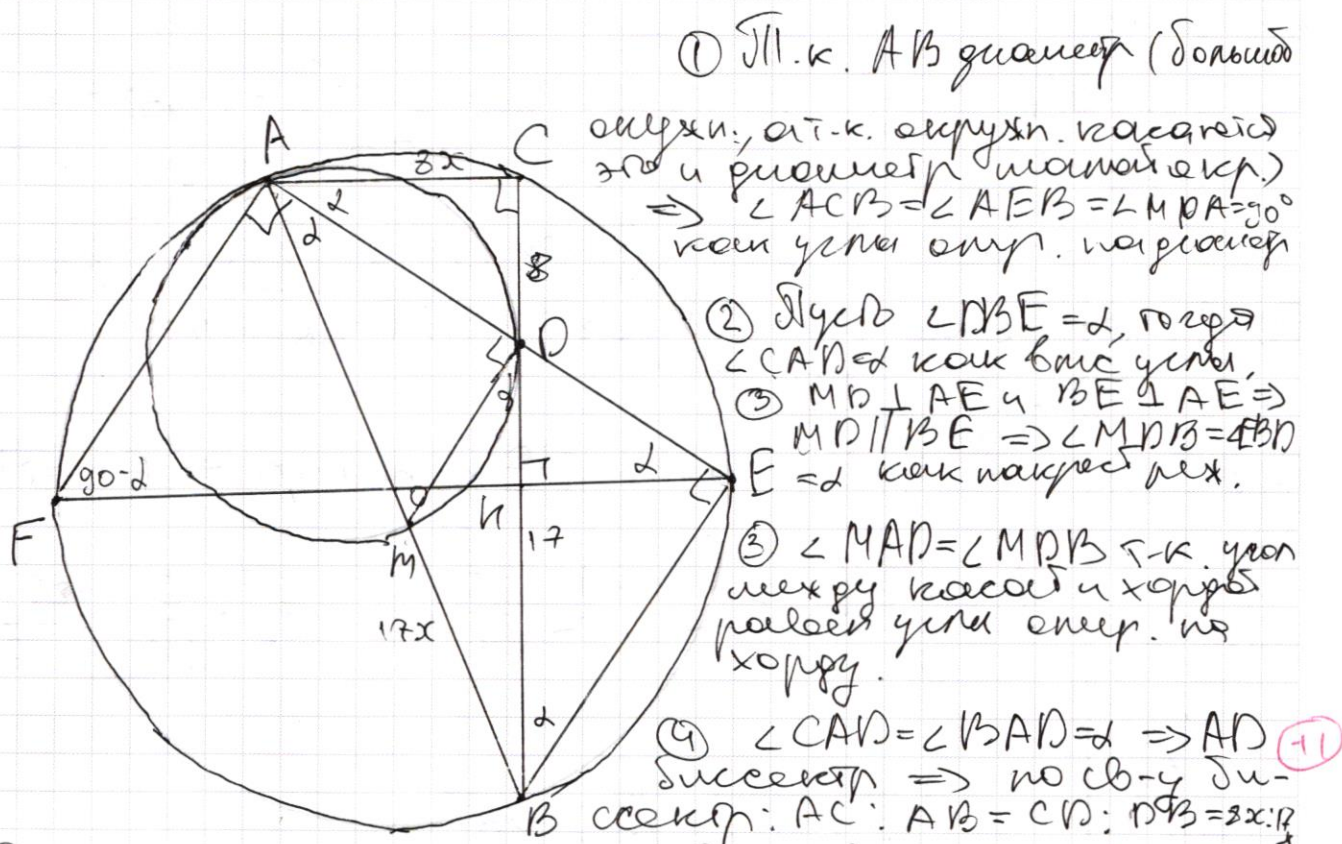 ① Т.к. AB диаметр (большой
окружн., а т.к. окружн. касается
это и диаметр малой окр.)
=> ∠ACB = ∠AEB = ∠MDA = 90°
как углы опир. на диаметр
② Пусть ∠DBE = α, тогда
∠CAD = α как впис углы.
③ MD ⊥ AE и BE ⊥ AE =>
MD || BE => ∠MDB = ∠EBD
= α как накрест леж.
③ ∠MAD = ∠MDB т-к угол
между касат и хордой
равен углу опир. на
хорду.
④ ∠CAD = ∠BAD = α => AD
+1
биссектр => по св-у би-
ссектр: AC : AB = CD : DB = 8x : 17x
A
8x
C
α
α
8
D
α
90-α
α
E
F
O
H
M
17
17x
α
B